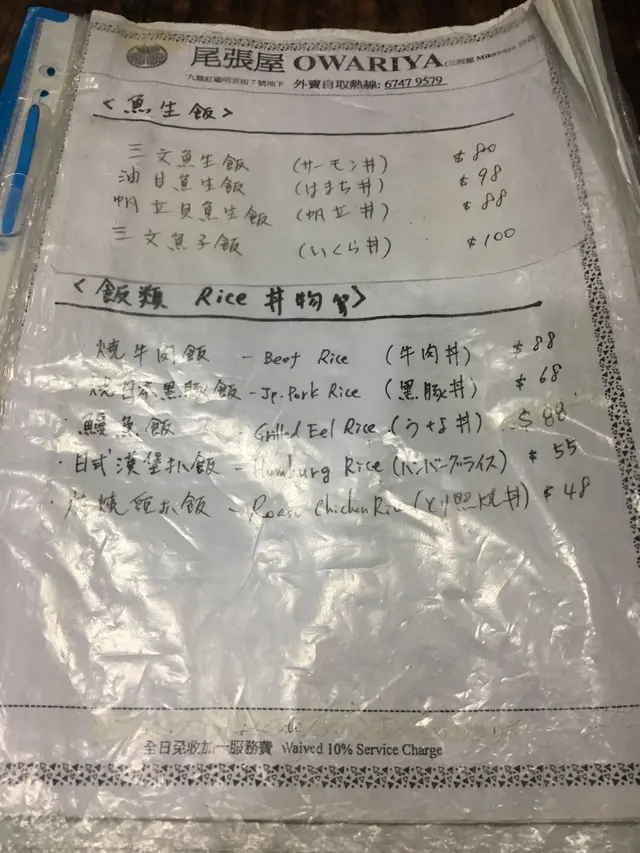 尾張屋 OWARIYA (三河屋 Mikawaya 分店)
九龍紅磡明安街7號地下 外賣自取熱線: 6747 9579
<魚生飯>
三文魚生飯 (サーモン丼) $80
油甘魚生飯 (はまち丼) $98
帆立貝魚生飯 (帆立丼) $88
三文魚子飯 (いくら丼) $100
<飯類 Rice 丼物等>
· 燒牛肉飯 - Beef Rice (牛肉丼) $88
燒日本黑豚飯 - Jp. Pork Rice (黒豚丼) $68
· 鰻魚飯 - Grilled Eel Rice (うな丼) $88
· 日式漢堡扒飯 - Humburg Rice (ハンバーグライス) $55
· 燒雞扒飯 - Roast Chicken Rice (とり照焼丼) $48
全日免收加一服務費 Waived 10% Service Charge